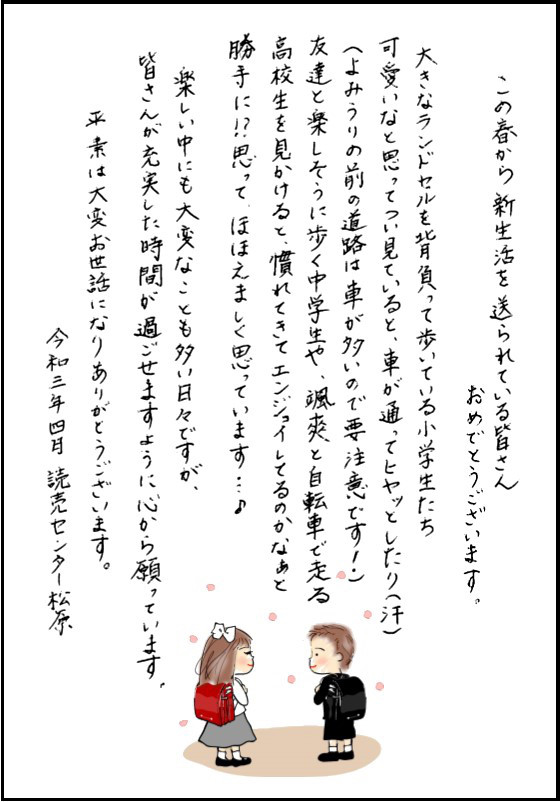 この春から新生活を送られている皆さん
おめでとうございます。
大きなランドセルを背負って歩いている小学生たち
可愛いなと思ってつい見ていると、車が通ってヒヤッとしたり(汗)
(よみうりの前の道路は車が多いので要注意です!)
友達と楽しそうに歩く中学生や、颯爽と自転車で走る
高校生を見かけると、慣れてきてエンジョイしてるのかなぁと
勝手に!?思って、ほほえましく思っています…♪
楽しい中にも大変なことも多い日々ですが、
皆さんが充実した時間が過ごせますように心から願っています。
平素は大変お世話になりありがとうございます。
令和三年四月 読売センター松原